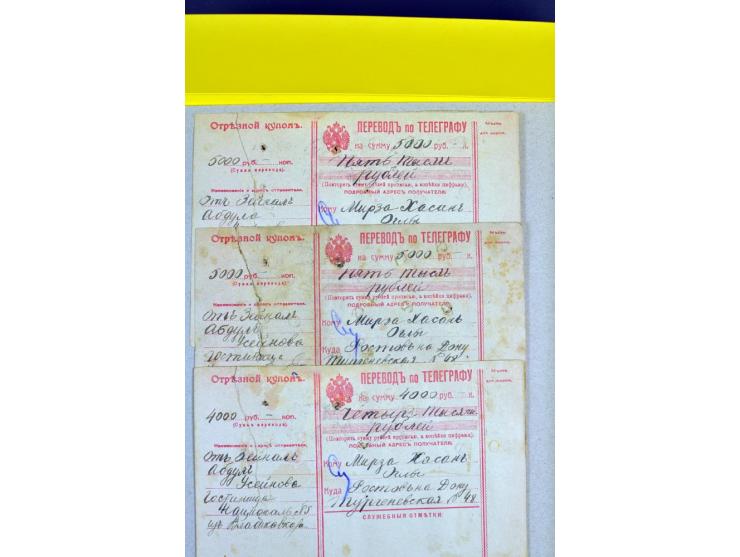 Отрѣзной купонъ.
5000 руб. – коп.
(Сумма перевода)
Наименованіе и адресъ отправителя.
Отъ Зейналъ
Абдула
ПЕРЕВОДЪ по ТЕЛЕГРАФУ
на сумму 5000 руб. – к.
Пять тысячъ
рублей
(Повторить сумму рублей прописью, а копѣйки цифрами).
ПОДРОБНЫЙ АДРЕСЪ ПОЛУЧАТЕЛЯ:
Кому Мирза Хасанъ
Оглы
для марокъ.
Отрѣзной купонъ.
5000 руб. – коп.
(Сумма перевода)
Наименованіе и адресъ отправителя.
Отъ Зейналъ
Абдулъ
Усейнова
Гостиница
ПЕРЕВОДЪ по ТЕЛЕГРАФУ
на сумму 5000 руб. – к.
Пять тысячъ
рублей
(Повторить сумму рублей прописью, а копѣйки цифрами).
ПОДРОБНЫЙ АДРЕСЪ ПОЛУЧАТЕЛЯ:
Кому Мирза Хасанъ
Оглы
Куда Ростовъ на Дону
Тургеневская № 48
для марокъ.
Отрѣзной купонъ.
4000 руб. – коп.
(Сумма перевода)
Наименованіе и адресъ отправителя.
Отъ Зейналъ
Абдулъ
Усейнова
Гостиница
изъ
ПЕРЕВОДЪ по ТЕЛЕГРАФУ
на сумму 4000 руб. – к.
Четыре тысячи
рублей
(Повторить сумму рублей прописью, а копѣйки цифрами).
ПОДРОБНЫЙ АДРЕСЪ ПОЛУЧАТЕЛЯ:
Кому Мирза Хасанъ
Оглы
Куда Ростовъ на Дону
Тургеневская № 48
СЛУЖЕБНЫЯ ОТМѢТКИ:
для марокъ.